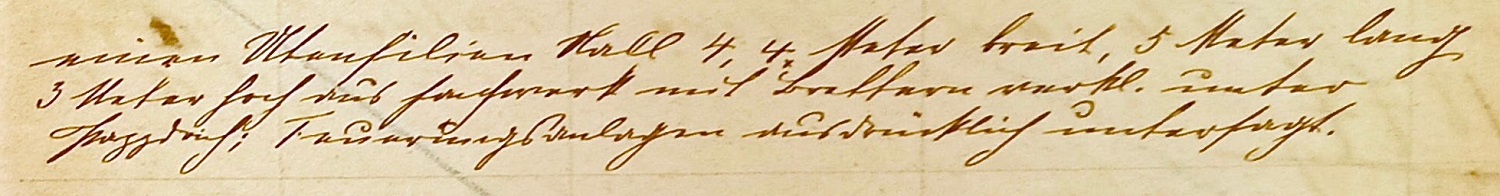 einen Utensilien Stall 4,4 Meter breit, 5 Meter lang
3 Meter hoch aus Fachwerk mit Brettern verkl. unter
Pappdach; Feuerungsanlagen ausdrücklich untersagt.